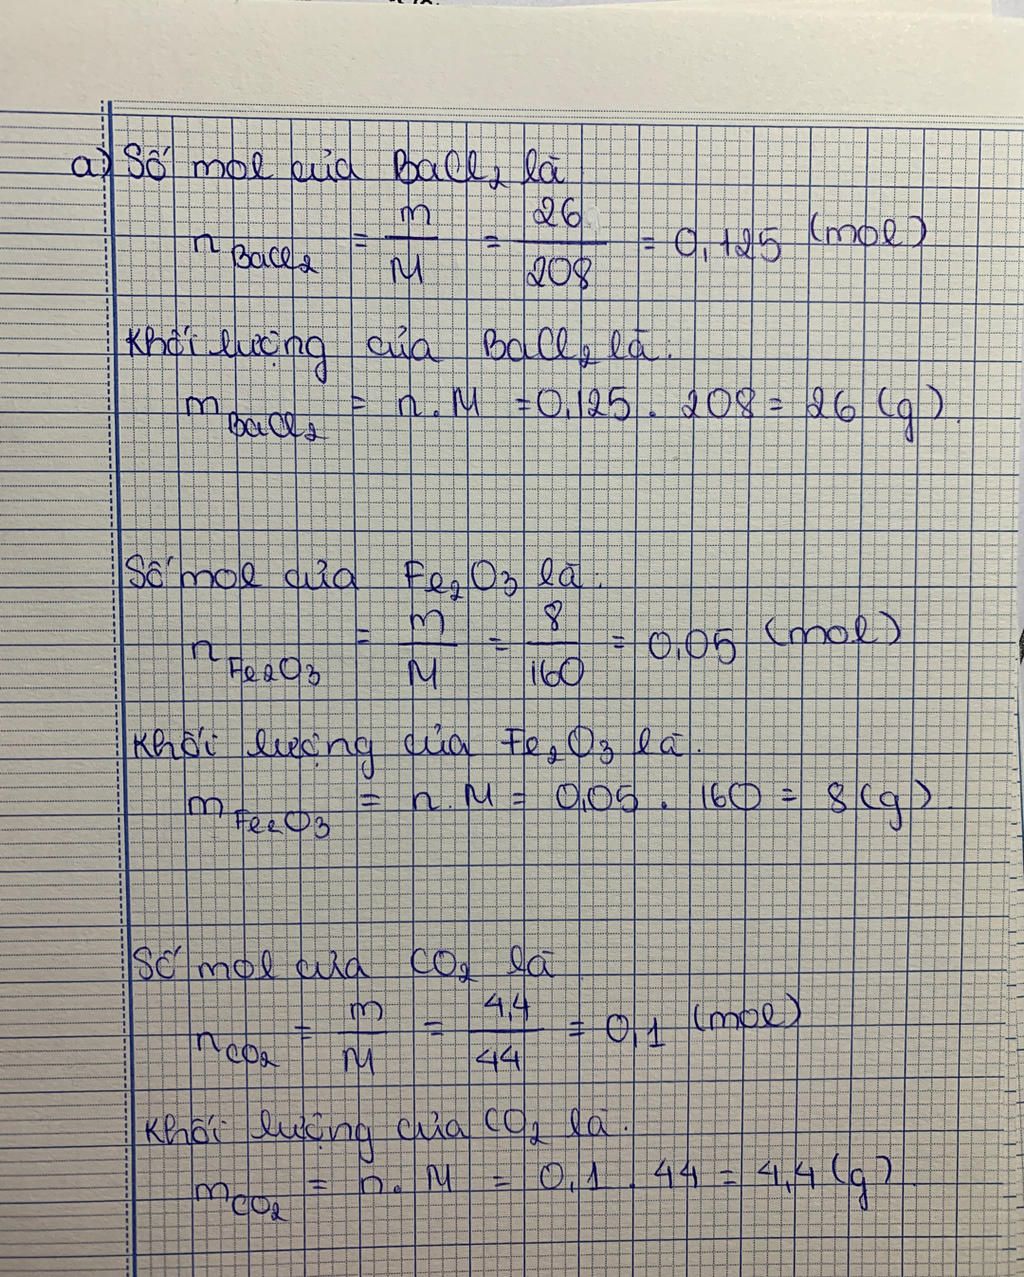 a) Số mol của BaCl₂ là
n BaCl₂ = m/M = 26/208 = 0,125 (mol)
Khối lượng của BaCl₂ là:
m BaCl₂ = n.M = 0,125 . 208 = 26 (g).
Số mol của Fe₂O₃ là.
n Fe₂O₃ = m/M = 8/160 = 0,05 (mol)
Khối lượng của Fe₂O₃ là.
m Fe₂O₃ = n.M = 0,05 . 160 = 8 (g).
Số mol của CO₂ là
n CO₂ = m/M = 4,4/44 = 0,1 (mol)
Khối lượng của CO₂ là.
m CO₂ = n.M = 0,1 . 44 = 4,4 (g)